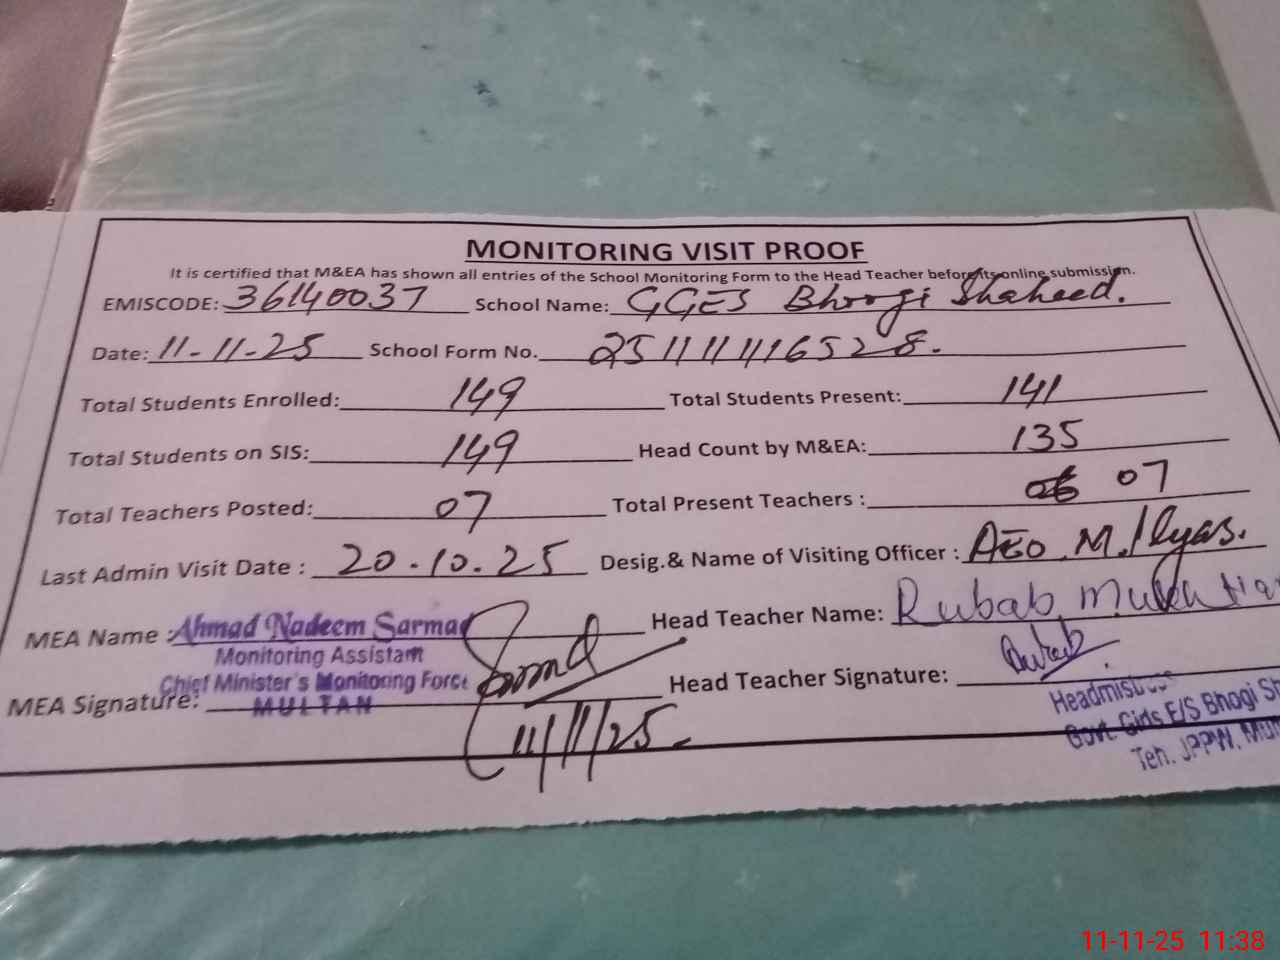 MONITORING VISIT PROOF
It is certified that M&EA has shown all entries of the School Monitoring Form to the Head Teacher before its online submission.
EMISCODE: 36140037 School Name: GGES Bhoogi Shaheed.
Date: 11-11-25 School Form No. 251111116528.
Total Students Enrolled: 149 Total Students Present: 141
Total Students on SIS: 149 Head Count by M&EA: 135
Total Teachers Posted: 07 Total Present Teachers : 07
Last Admin Visit Date : 20.10.25 Desig.& Name of Visiting Officer : AEO M. Ilyas.
MEA Name : Ahmad Nadeem Sarmad Head Teacher Name: Rubab Mukhtiar
Monitoring Assistant
Chief Minister's Monitoring Force
MULTAN
MEA Signature: Head Teacher Signature: Rubab
11/11/25
Headmistress
Govt. Girls E/S Bhogi Sh
Teh. JPPW. Mul
11-11-25 11:38